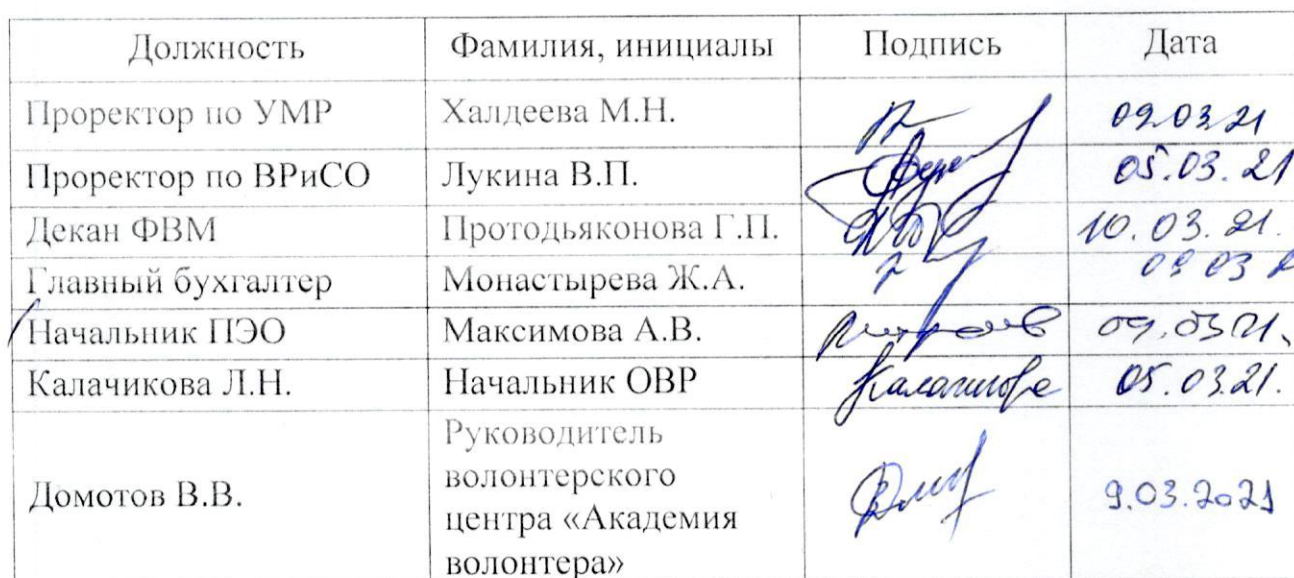 Должность Фамилия, инициалы Подпись Дата
Проректор по УМР Халдеева М.Н. 09.03.21
Проректор по ВРиСО Лукина В.П. 05.03.21
Декан ФВМ Протодьяконова Г.П. 10.03.21.
Главный бухгалтер Монастырева Ж.А. 09 03
Начальник ПЭО Максимова А.В. 09.03.21.
Калачикова Л.Н. Начальник ОВР 05.03.21.
Домотов В.В. Руководитель
волонтерского
центра «Академия
волонтера» 9.03.2021